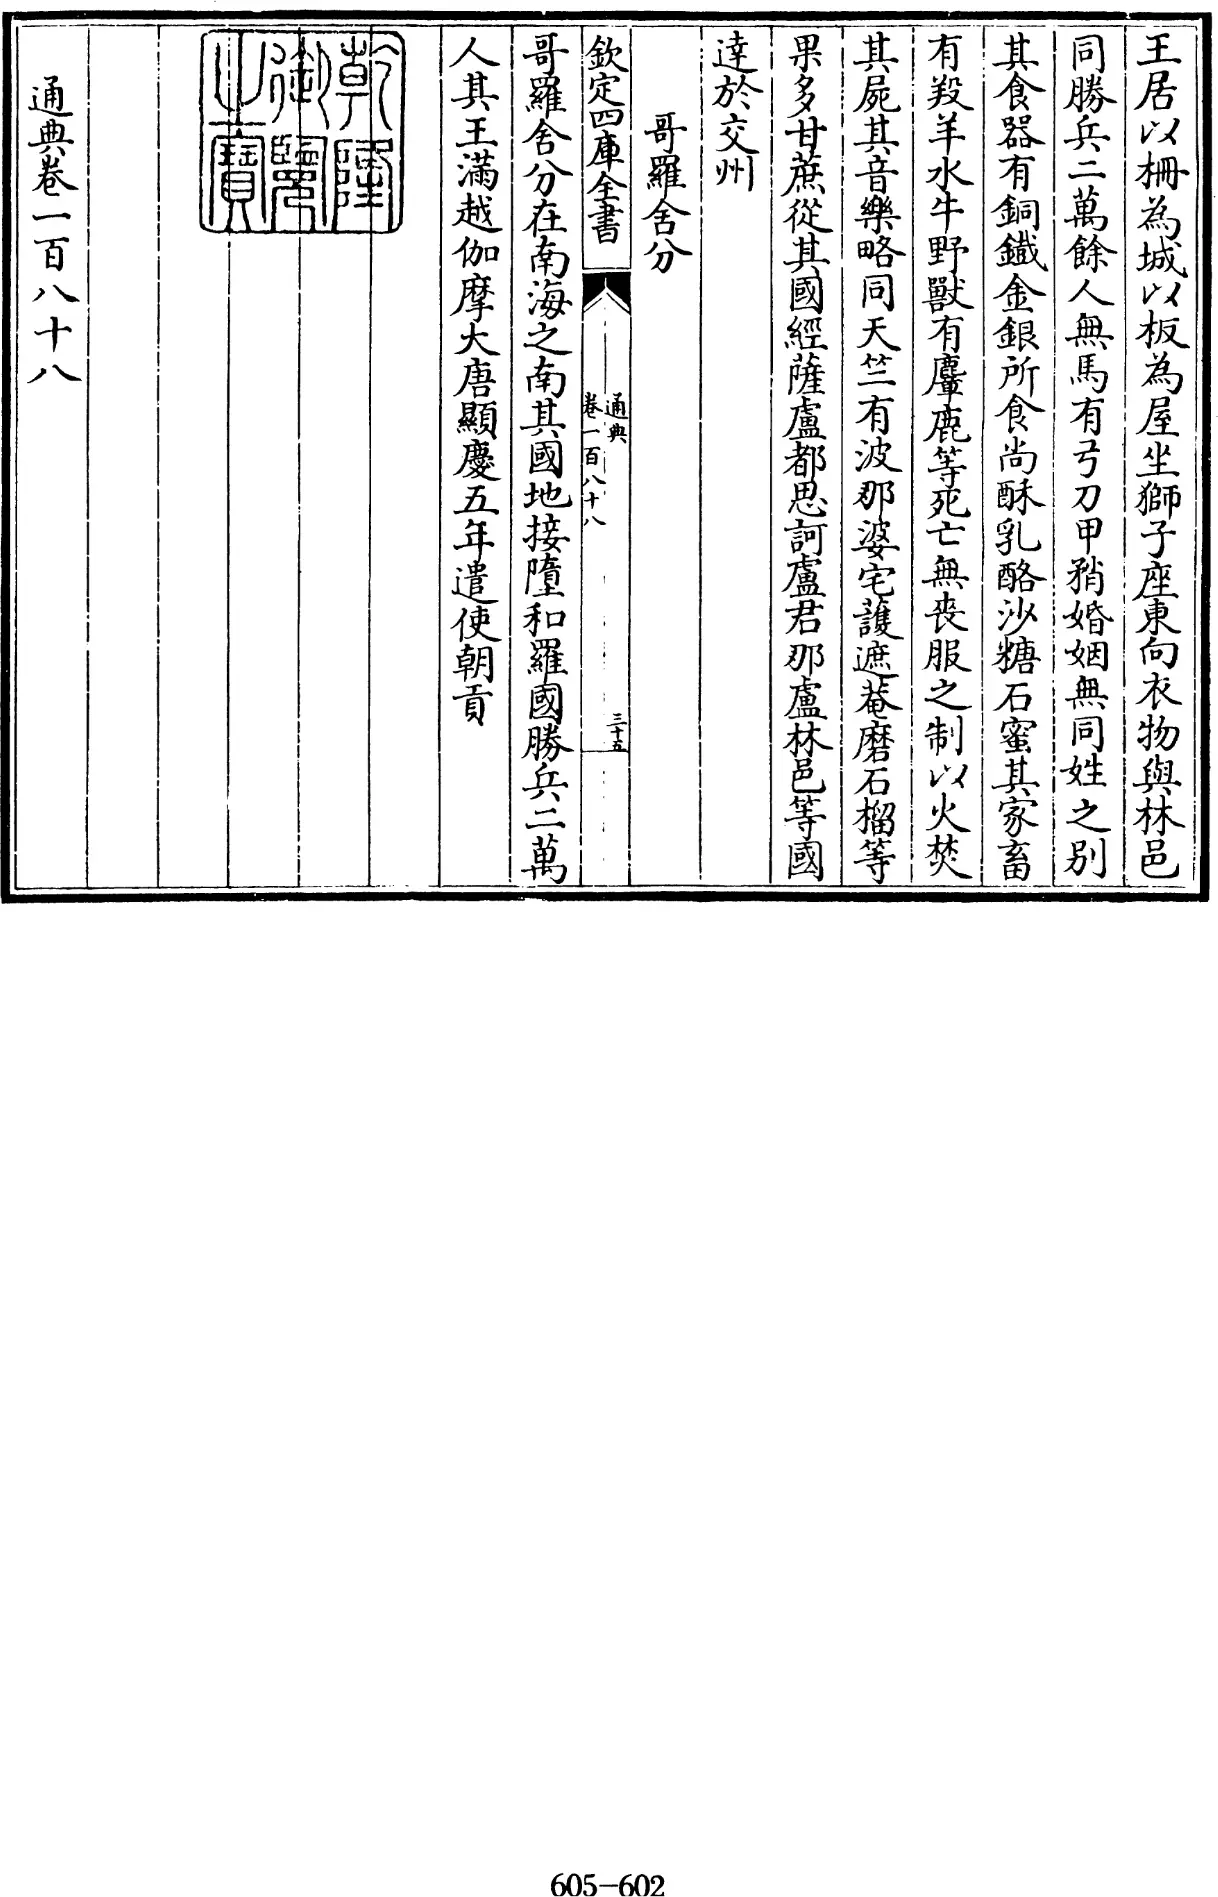 王居以柵為城以板為屋坐獅子座東向衣物與林邑
同勝兵二萬餘人無馬有弓刀甲矟婚姻無同姓之別
其食器有銅鐵金銀所食尚酥乳酪沙糖石蜜其家畜
有羖羊水牛野獸有麞鹿等死亡無喪服之制以火焚
其屍其音樂略同天竺有波那婆宅護遮菴磨石榴等
果多甘蔗從其國經薩盧都思訶盧君那盧林邑等國
達於交州
哥羅舍分
欽定四庫全書
通典
卷一百八十八
三十五
哥羅舍分在南海之南其國地接墮和羅國勝兵二萬
人其王滿越伽摩大唐顯慶五年遣使朝貢
乾隆
御覽
之寶
通典卷一百八十八
605-602